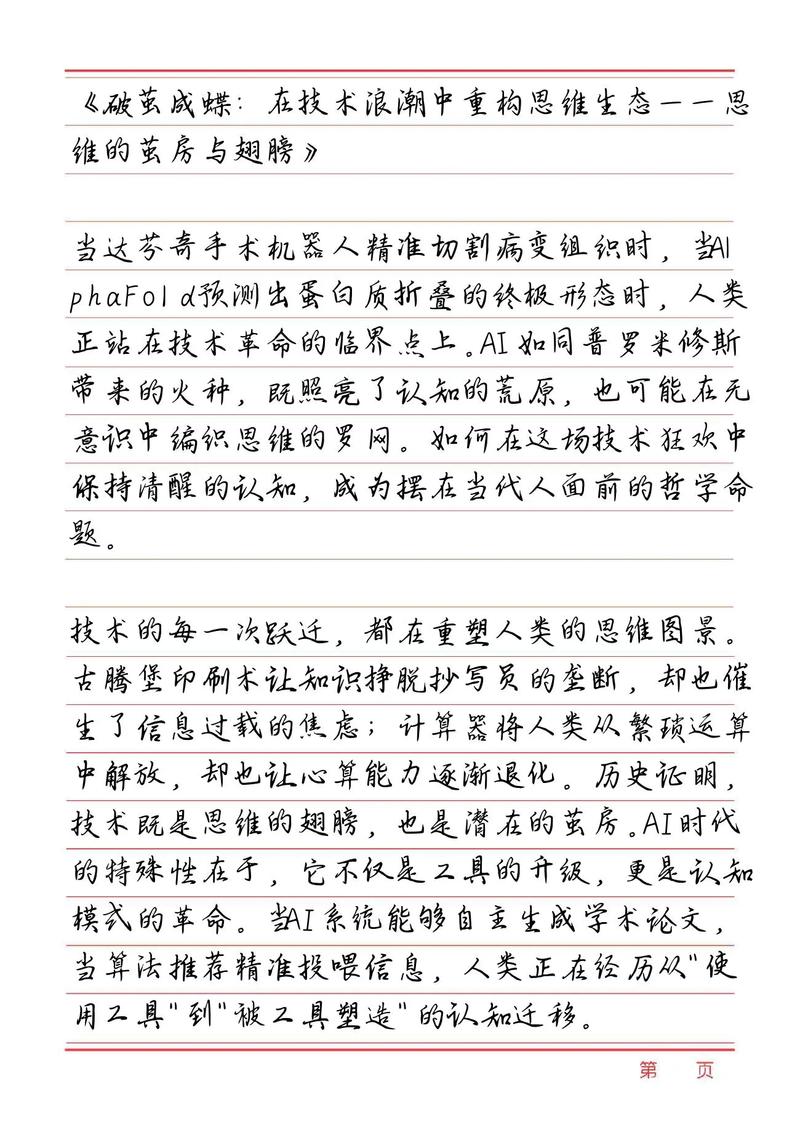 《破茧成蝶：在技术浪潮中重构思维生态——思
维的茧房与翅膀》
当达芬奇手术机器人精准切割病变组织时，当Al
phaFold预测出蛋白质折叠的终极形态时，人类
正站在技术革命的临界点上。AI如同普罗米修斯
带来的火种，既照亮了认知的荒原，也可能在无
意识中编织思维的罗网。如何在这场技术狂欢中
保持清醒的认知，成为摆在当代人面前的哲学命
题。
技术的每一次跃迁，都在重塑人类的思维图景。
古腾堡印刷术让知识挣脱抄写员的垄断，却也催
生了信息过载的焦虑；计算器将人类从繁琐运算
中解放，却也让心算能力逐渐退化。历史证明，
技术既是思维的翅膀，也是潜在的茧房。AI时代
的特殊性在于，它不仅是工具的升级，更是认知
模式的革命。当AI系统能够自主生成学术论文，
当算法推荐精准投喂信息，人类正在经历从"使
用工具"到"被工具塑造"的认知迁移。
第 页